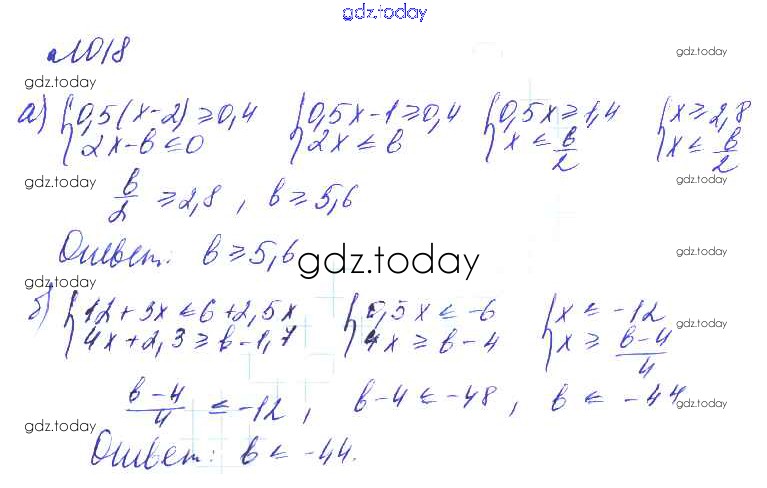 gdz.today
№1018
gdz.today
gdz.today
а) {0,5(x-2) ≥ 0,4 {0,5x-1 ≥ 0,4 {0,5x ≥ 1,4 {x ≥ 2,8
2x-b ≤ 0 2x ≤ b x ≤ b/2 x ≤ b/2
gdz.today
gdz.today
b/2 ≥ 2,8, b ≥ 5,6
Ответ: b ≥ 5,6
gdz.today
gdz.today
gdz.today
б) {12+3x ≤ 6+2,5x {0,5x ≤ -6 {x ≤ -12
4x+2,3 ≥ b-1,7 4x ≥ b-4 x ≥ (b-4)/4
gdz.today
(b-4)/4 ≤ -12, b-4 ≤ -48, b ≤ -44
gdz.today
gdz.today
Ответ: b ≤ -44.